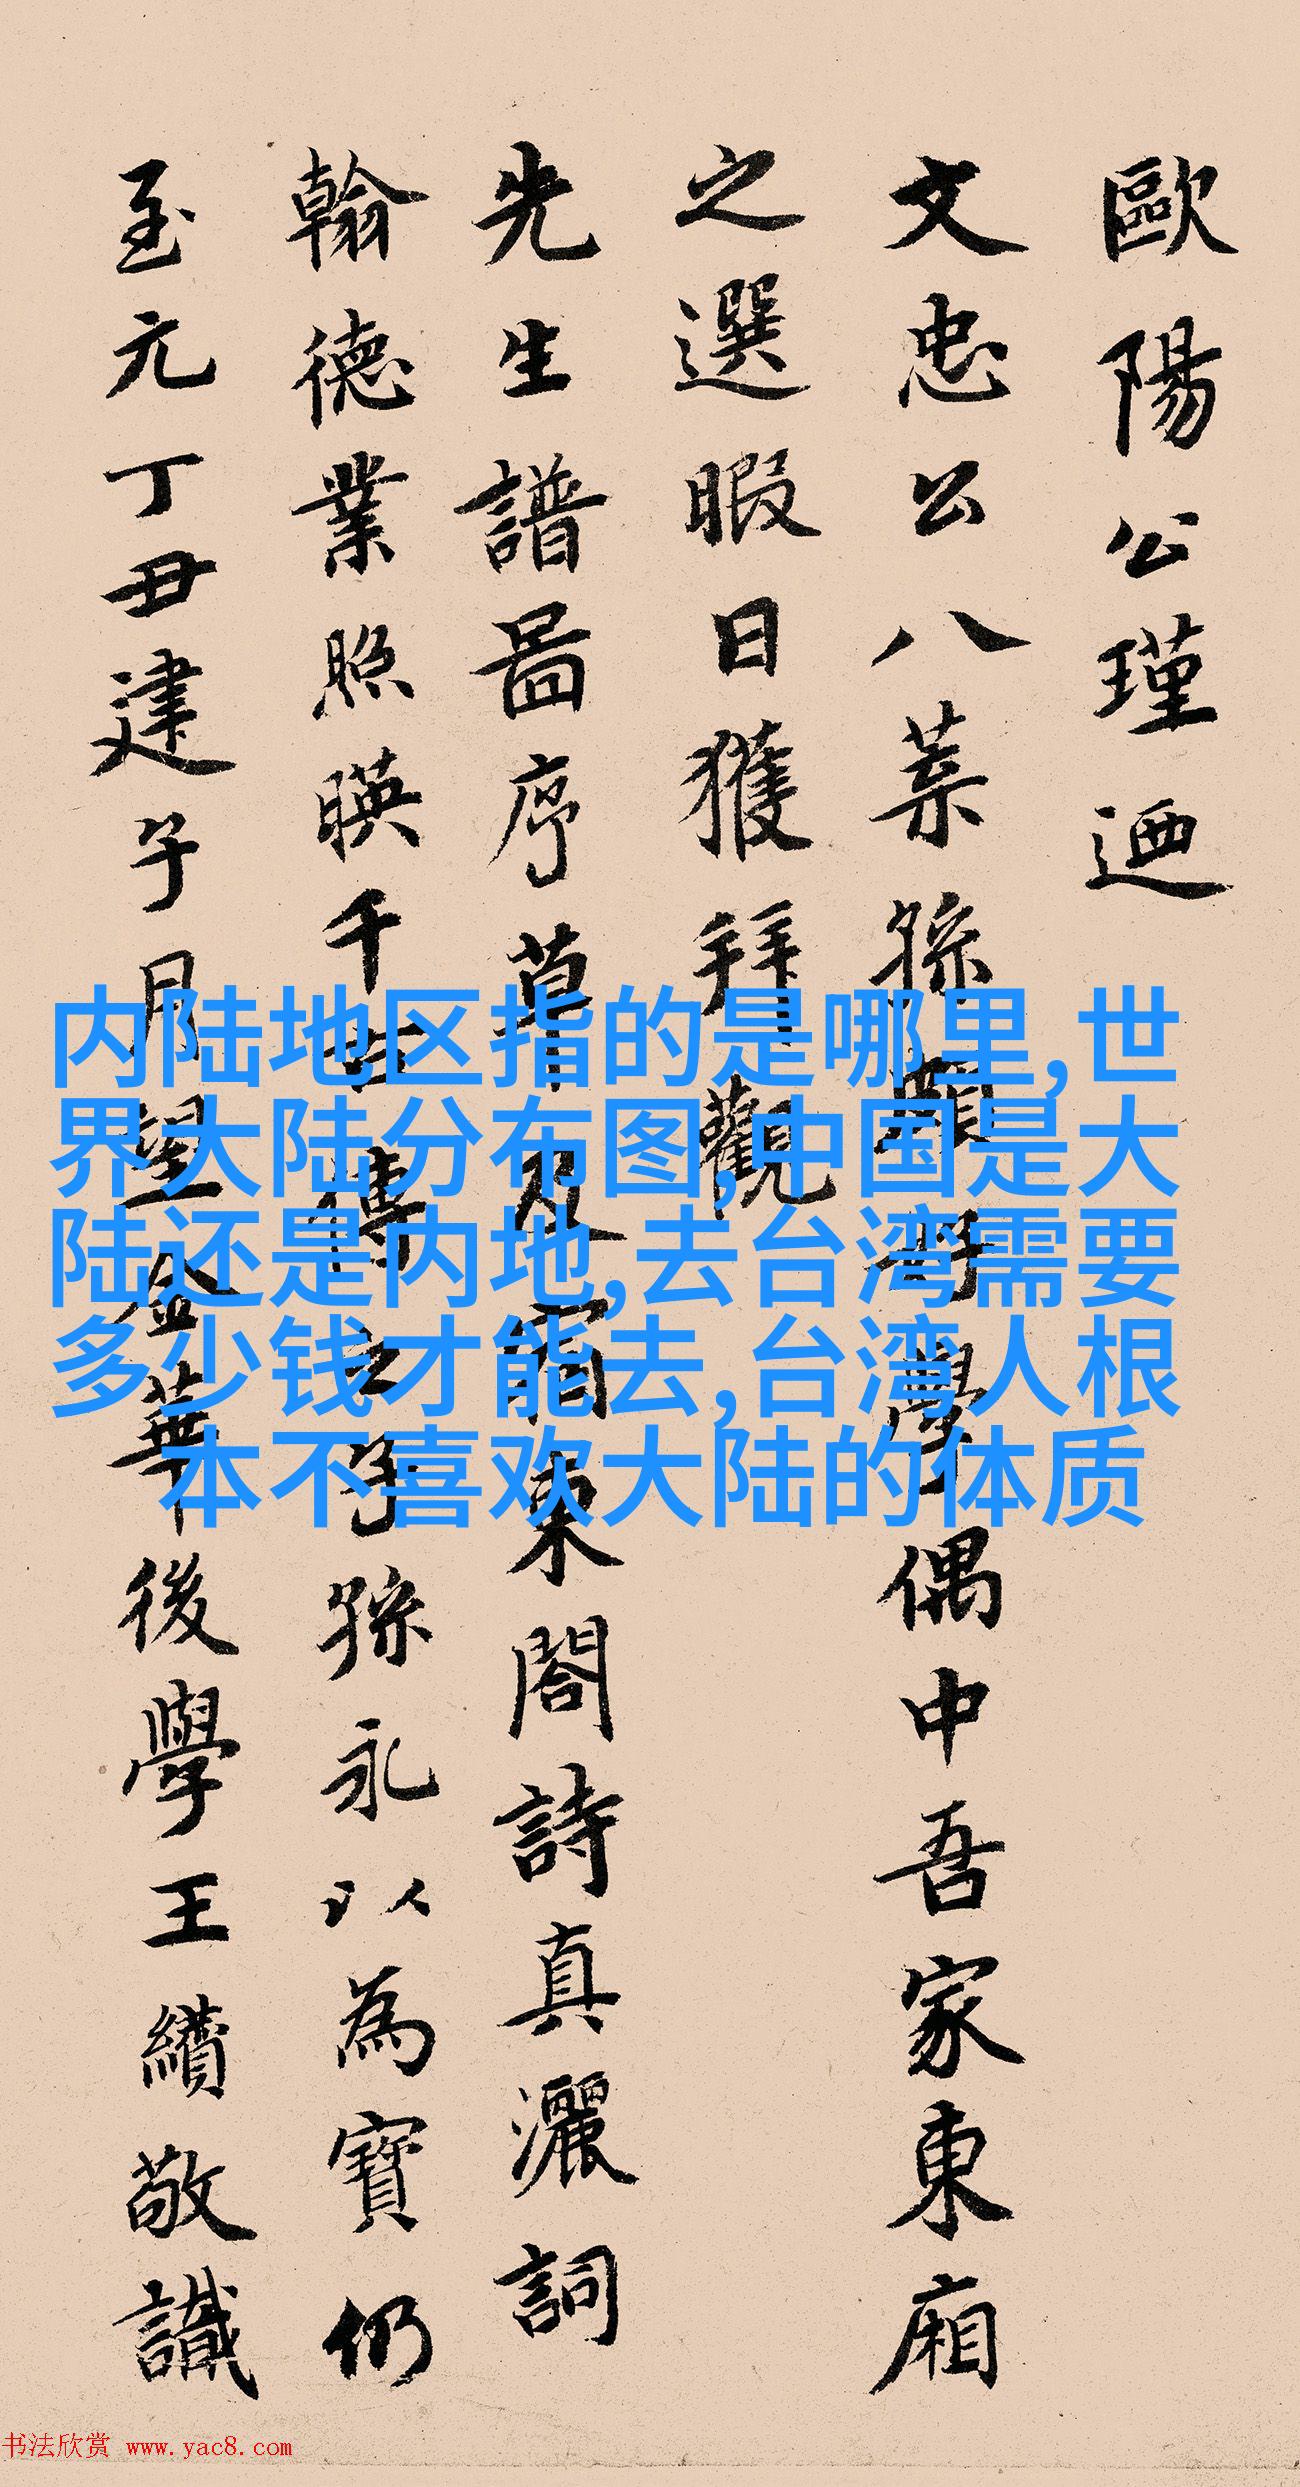 歐陽公瑾迺
文忠公八葉孫好學偶中吾家東廂
之選暇日獲拜觀
先生譜圖序及宿東閣詩真灑詞
翰德業照暎千世傳之子孫永以為寶仍
至元丁丑建子月望金華後學王敬識
内陆地区指的是哪里,世
界大陆分布图,中国是大
陆还是内地,去台湾需要
多少钱才能去,台湾人根
本不喜欢大陆的体质
书法欣赏 www.yac8.com